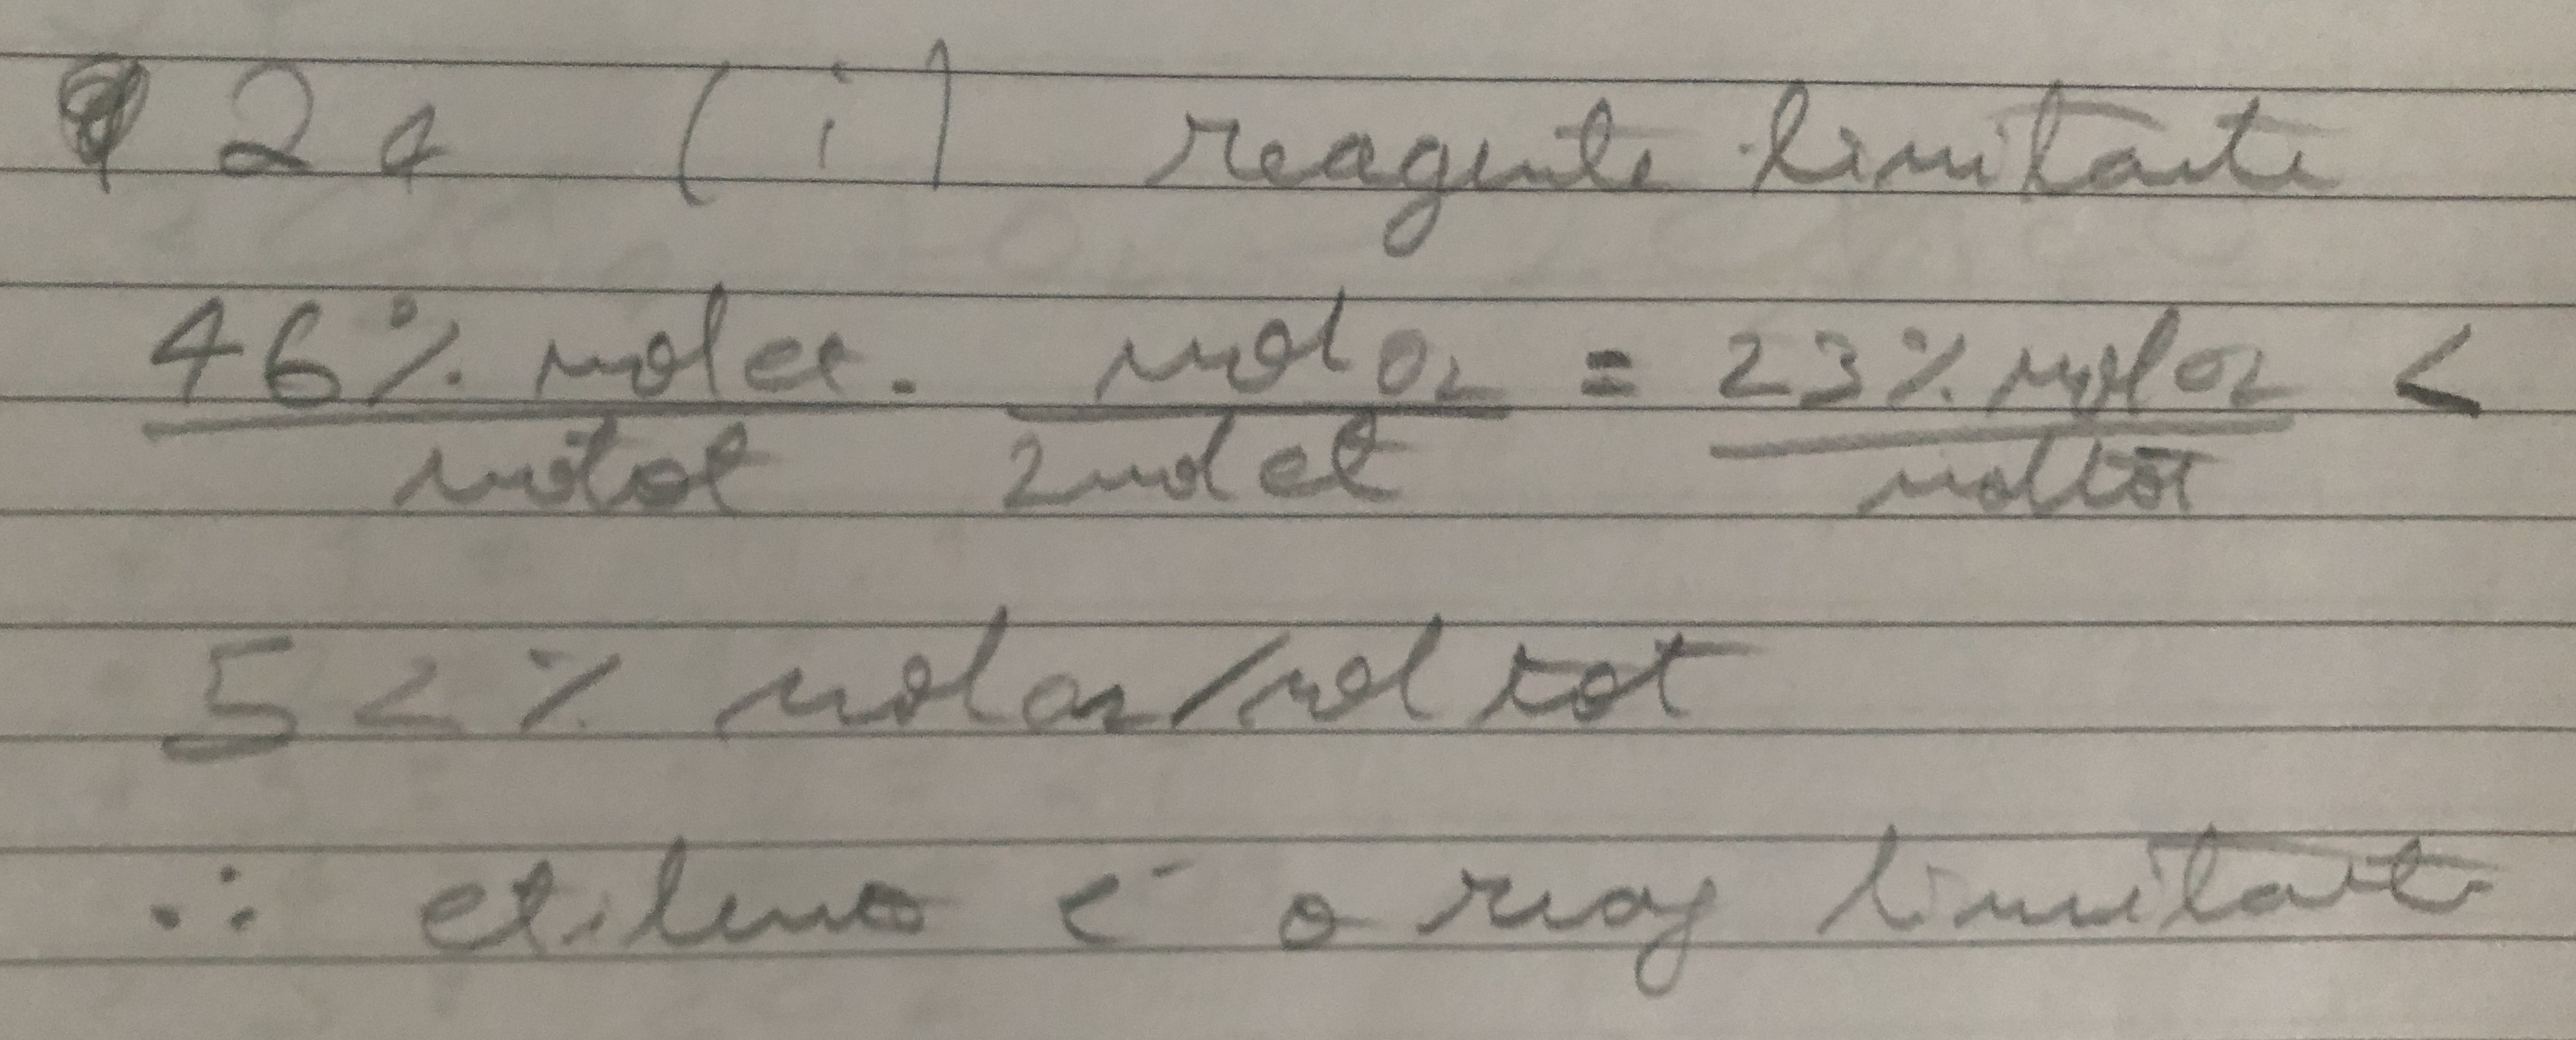 2a (i) reagente limitante
46% mol et . mol O2 = 23% mol O2 <
mol tot 2 mol et mol tot
52% mol O2/mol tot
∴ etileno é o reag limitante